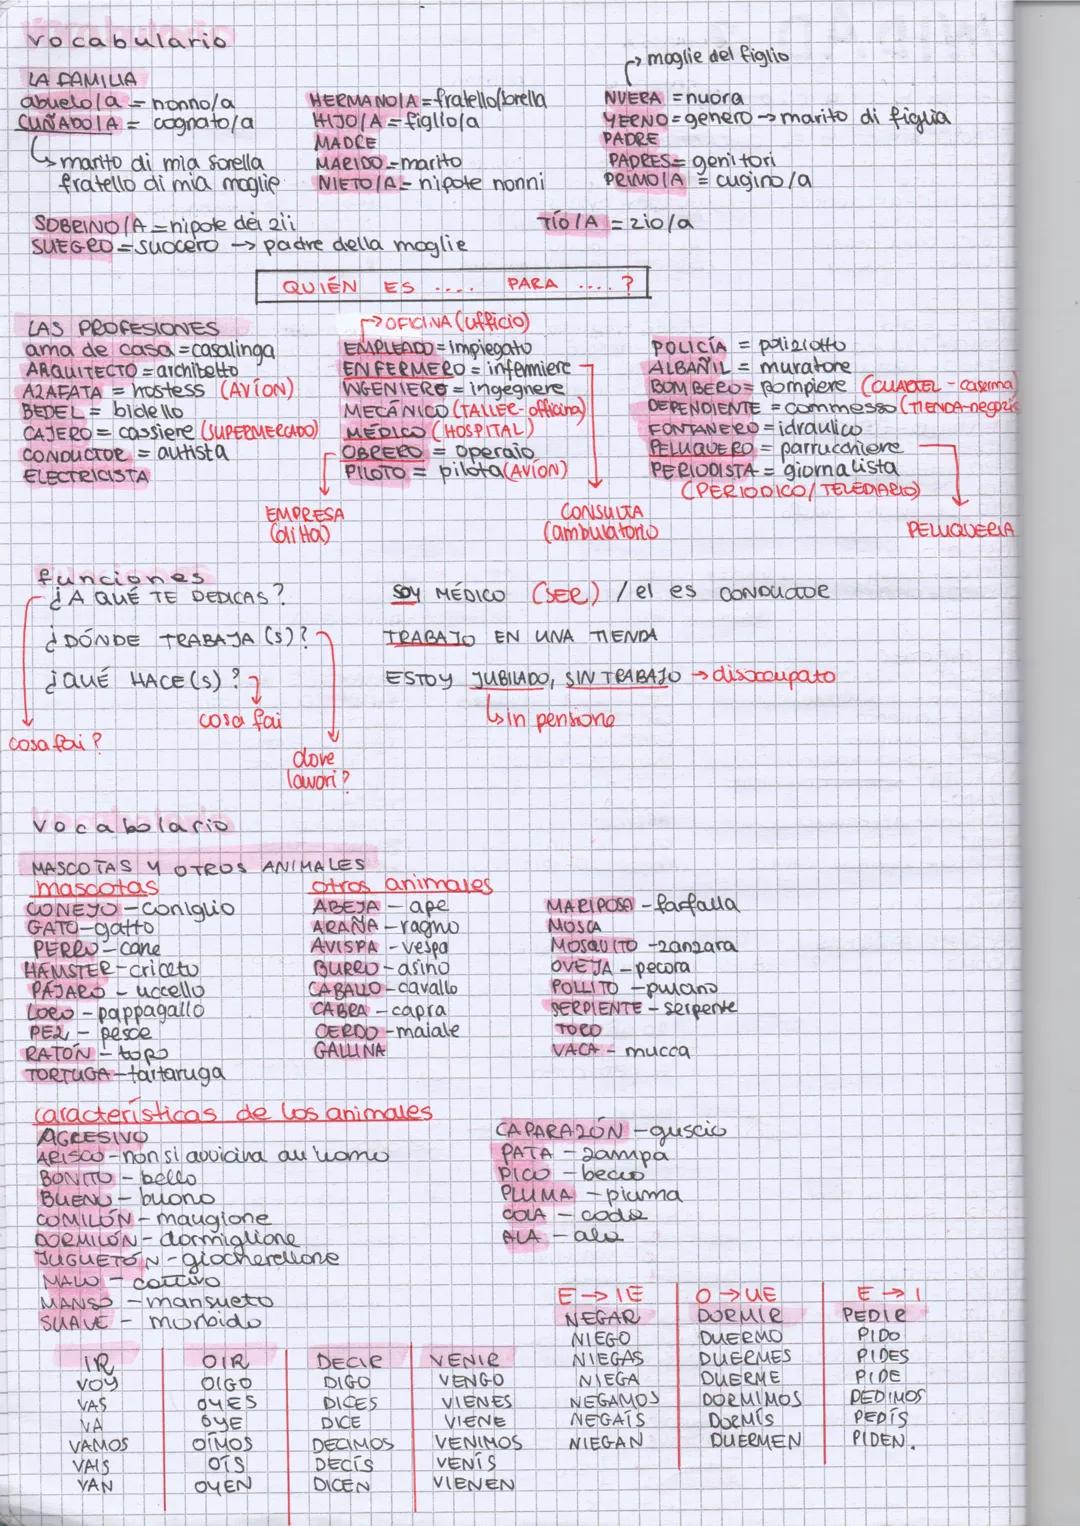 vocabulario
LA FAMILIA
→ moglie del figlio
abuelo/a = nonno/a
CUÑADO/A = cognato/a
↳ marito di mia sorella
fratello di mia moglie
HERMANO/A = fratello/sorella
HIJO/A = figlio/a
MADRE
MARIDO = marito
NIETO/A = nipote nonni
NUERA = nuora
YERNO = genero → marito di figlia
PADRE
PADRES = genitori
PRIMO/A = cugino/a
SOBRINO/A = nipote dei zii
TÍO/A = zio/a
SUEGRO = suocero → padre della moglie
QUIÉN ES .... PARA ....?
LAS PROFESIONES
ama de casa = casalinga
ARQUITECTO = architetto
AZAFATA = hostess (AVÍON)
BEDEL = bidello
CAJERO = cassiere (SUPERMERCADO)
CONDUCTOR = autista
ELECTRICISTA
→ OFICINA (ufficio)
EMPLEADO = impiegato
ENFERMERO = infermiere
INGENIERO = ingegnere
MECÁNICO (TALLER - officina)
MÉDICO (HOSPITAL)
OBRERO = operaio
PILOTO = pilota (AVÍON)
EMPRESA
(ditta)
CONSULTA
(ambulatorio)
POLICÍA = poliziotto
ALBAÑIL = muratore
BOMBERO = pompiere (CUARTEL - caserma)
DEPENDIENTE = commesso (TIENDA - negozio
FONTANERO = idraulico
PELUQUERO = parrucchiere
PERIODISTA = giornalista
(PERIODICO/TELEDIARIO)
PELUQUERIA
funciones
¿A QUÉ TE DEDICAS?
SOY MÉDICO (SER) / el es CONDUCTOR
¿DÓNDE TRABAJA(S)?
TRABAJO EN UNA TIENDA
¿QUÉ HACE(S)?
ESTOY JUBILADO, SIN TRABAJO → disoccupato
cosa fai
↳ in pensione
cosa fai?
dove
lavori?
vocabolario
MASCOTAS Y OTROS ANIMALES
mascotas
CONEJO - coniglio
GATO - gatto
PERRO - cane
HÁMSTER - criceto
PÁJARO - uccello
LORO - pappagallo
PEZ - pesce
RATÓN - topo
TORTUGA - tartaruga
otros animales
ABEJA - ape
ARAÑA - ragno
AVISPA - vespa
BURRO - asino
CABALLO - cavallo
CABRA - capra
CERDO - maiale
GALLINA
MARIPOSA - farfalla
MOSCA
MOSQUITO - zanzara
OVEJA - pecora
POLLITO - pulcino
SERPIENTE - serpente
TORO
VACA - mucca
características de los animales
AGRESIVO
ARISCO - non si avvicina all'uomo
BONITO - bello
BUENO - buono
COMILÓN - mangione
DORMILÓN - dormiglione
JUGUETÓN - giocherellone
MALO - cattivo
MANSO - mansueto
SUAVE - morbido
CAPARAZÓN - guscio
PATA - zampa
PICO - becco
PLUMA - piuma
COLA - coda
ALA - ala
IR
VOY
VAS
VA
VAMOS
VAIS
VAN
OIR
OIGO
OYES
OYE
OÍMOS
OÍS
OYEN
DECIR
DIGO
DICES
DICE
DECIMOS
DECÍS
DICEN
VENIR
VENGO
VIENES
VIENE
VENIMOS
VENÍS
VIENEN
E → IE
NEGAR
NIEGO
NIEGAS
NIEGA
NEGAMOS
NEGAÍS
NIEGAN
O → UE
DORMIR
DUERMO
DUERMES
DUERME
DORMIMOS
DORMÍS
DUERMEN
E → I
PEDIR
PIDO
PIDES
PIDE
PEDIMOS
PEDÍS
PIDEN.